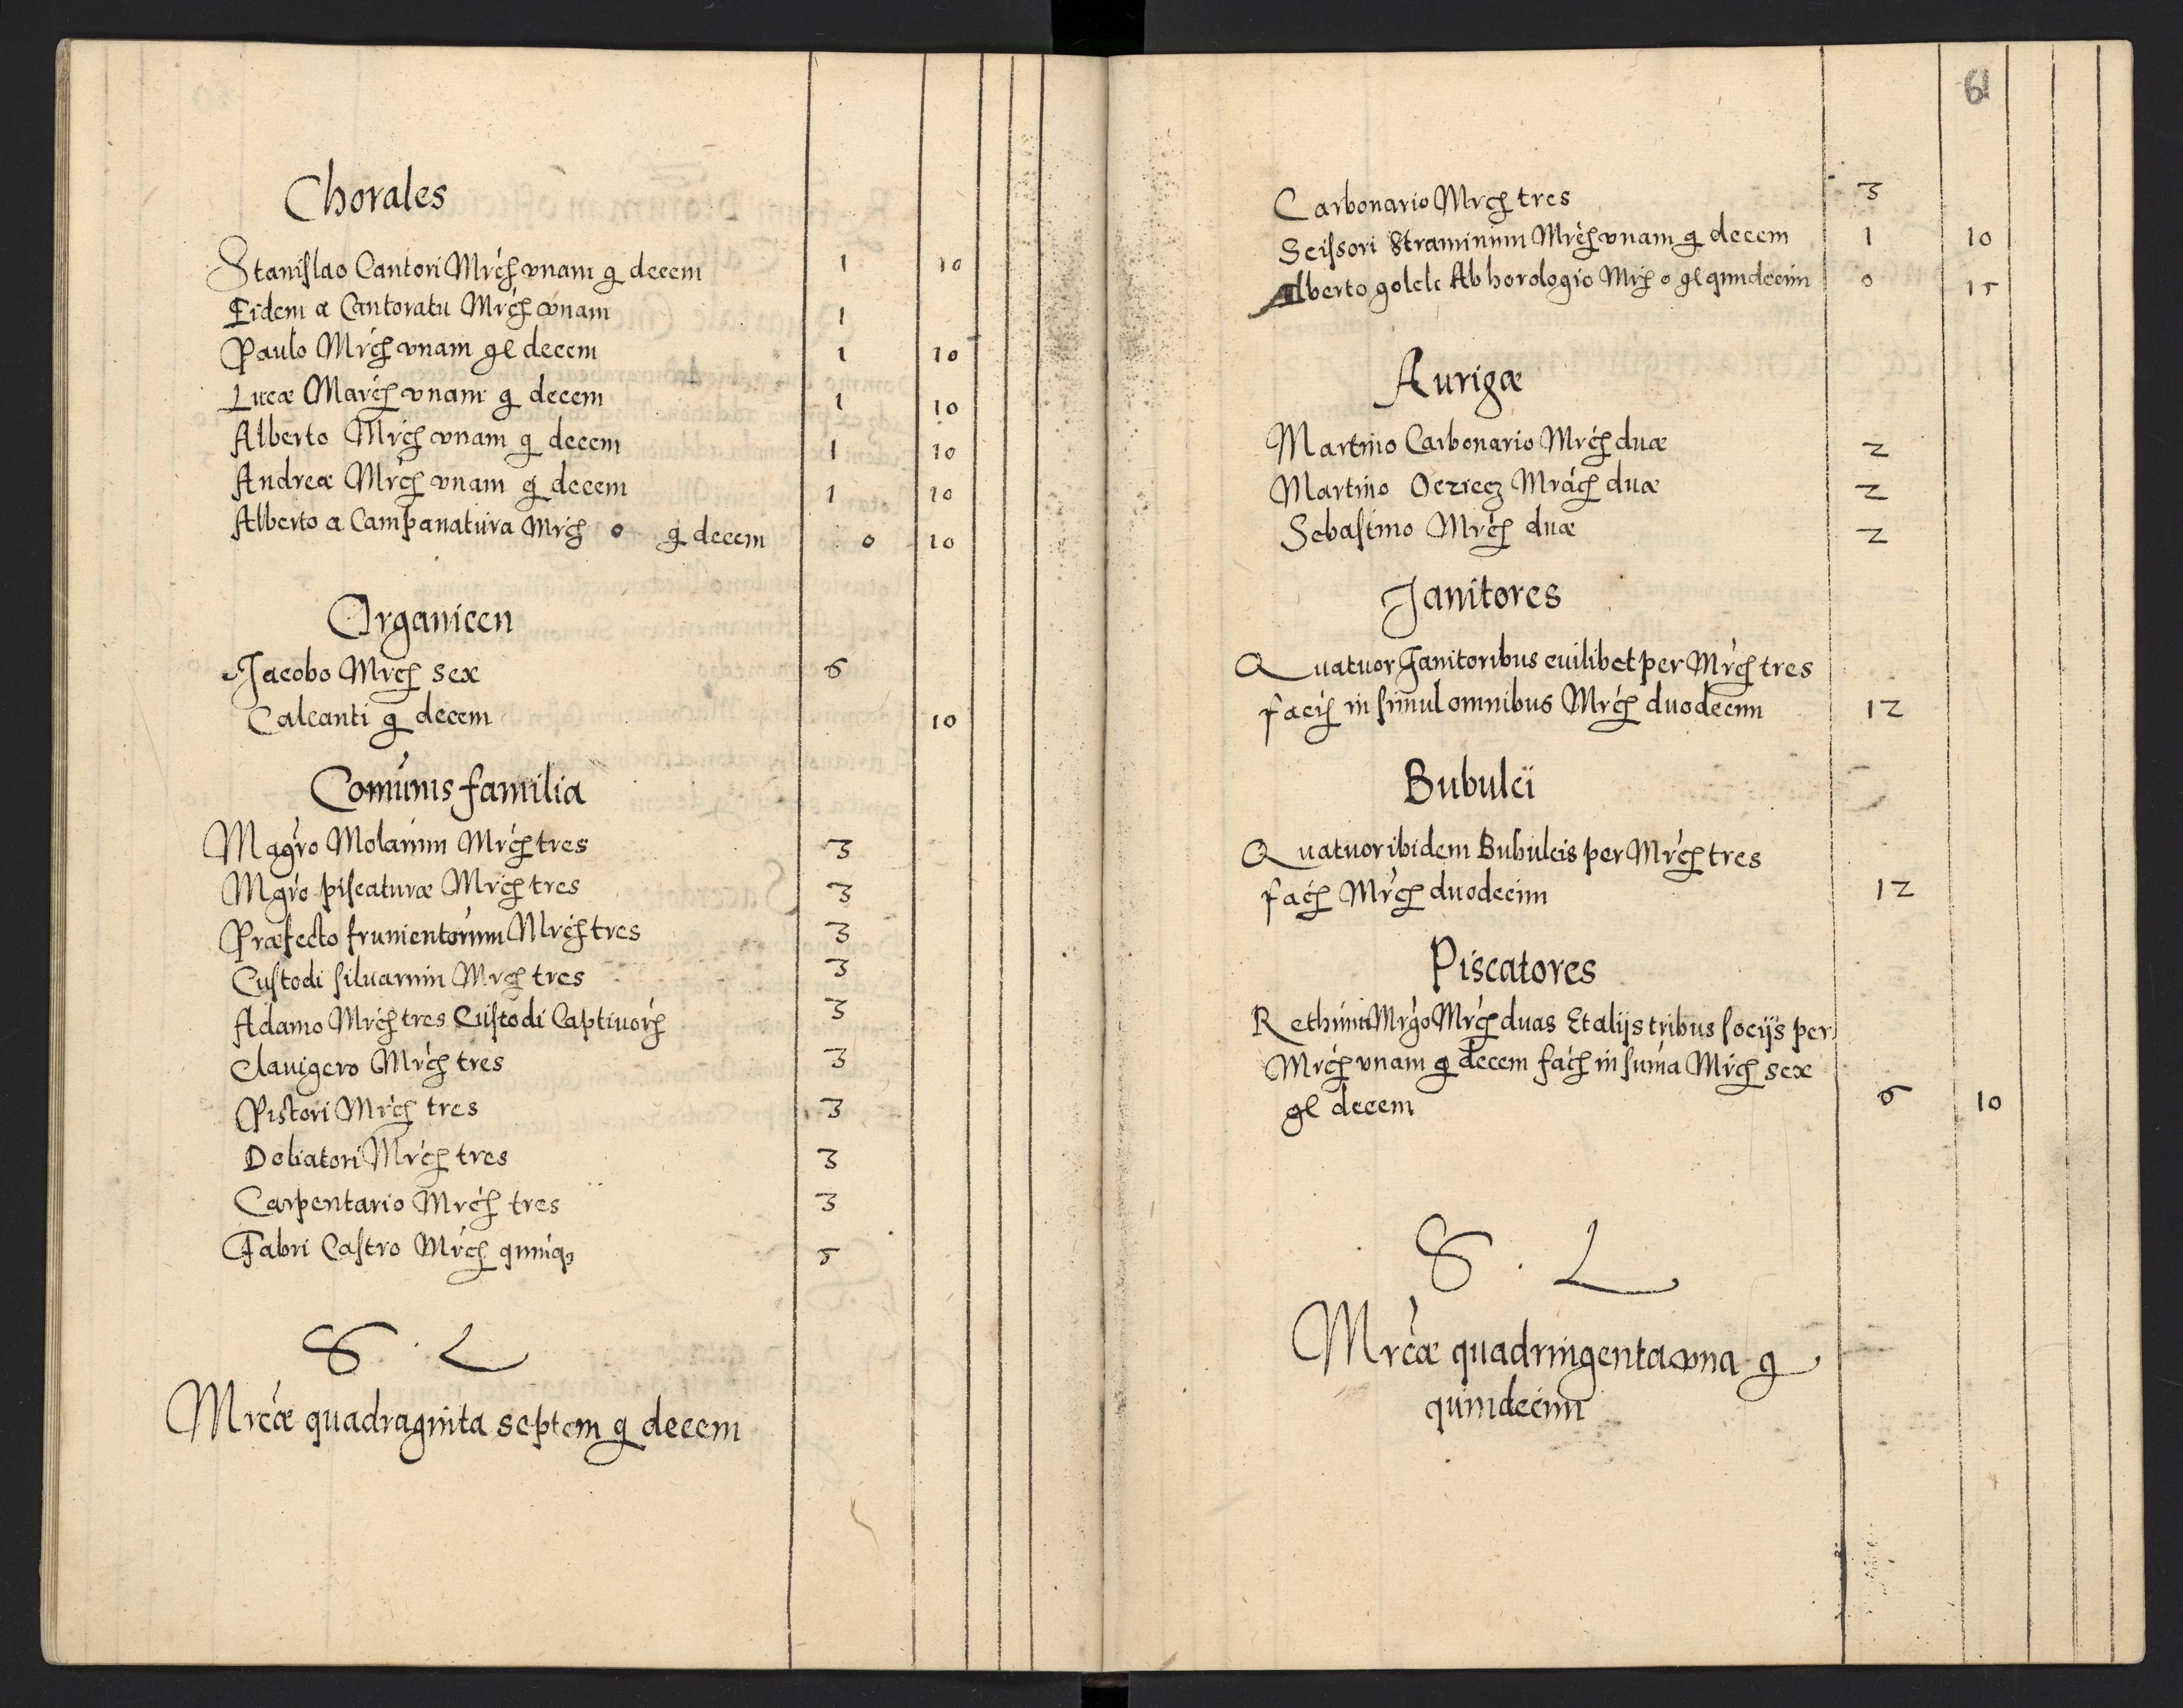 Chorales
Stanislao Cantori Mrcħ vnam g decem 1 10
Eidem a Cantoratu Mrcħ vnam 1
Paulo Mrcħ vnam gl decem 1 10
Lucæ Marcħ vnam g decem 1 10
Alberto Mrcħ vnam g decem 1 10
Andreæ Mrcħ vnam g decem 1 10
Alberto a Campanatura Mrcħ 0 g decem 0 10
Organicen
Jacobo Mrcħ sex 6
Calcanti g decem 10
Comunis familia
Magro Molarum Mrcħ tres 3
Mgro piscaturæ Mrcħ tres 3
Præfecto frumentorum Mrcħ tres 3
Custodi siluarum Mrcħ tres 3
Adamo Mrcħ tres Custodi Captiuorħ 3
Clauigero Mrcħ tres 3
Pistori Mrcħ tres 3
Doliatori Mrcħ tres 3
Carpentario Mrcħ tres 3
Fabri Castro Mrcħ quinqȝ 5
S . L
Mrcæ quadraginta septem g decem
61
Carbonario Mrcħ tres 3
Scissori Straminum Mrcħ vnam g decem 1 10
Alberto golele Ab horologio Mrcħ 0 gl quindecim 0 15
Aurigæ
Martino Carbonario Mrcħ duæ 2
Martino Ocziecz Mrācħ duæ 2
Sebastino Mrcħ duæ 2
Janitores
Quatuor Janitoribus cuilibet per Mrcħ tres
faciħ in simul omnibus Mrcħ duodecim 12
Bubulci
Quatuor ibidem Bubulcis per Mrcħ tres
facħ Mrcħ duodecim 12
Piscatores
Mrgo Mrcħ duas Et alijs tribus socijs per
Mrcħ vnam g decem facħ in suma Mrcħ sex
gl decem 6 10
S . L
Mrcæ quadringenta vna g
quindecim